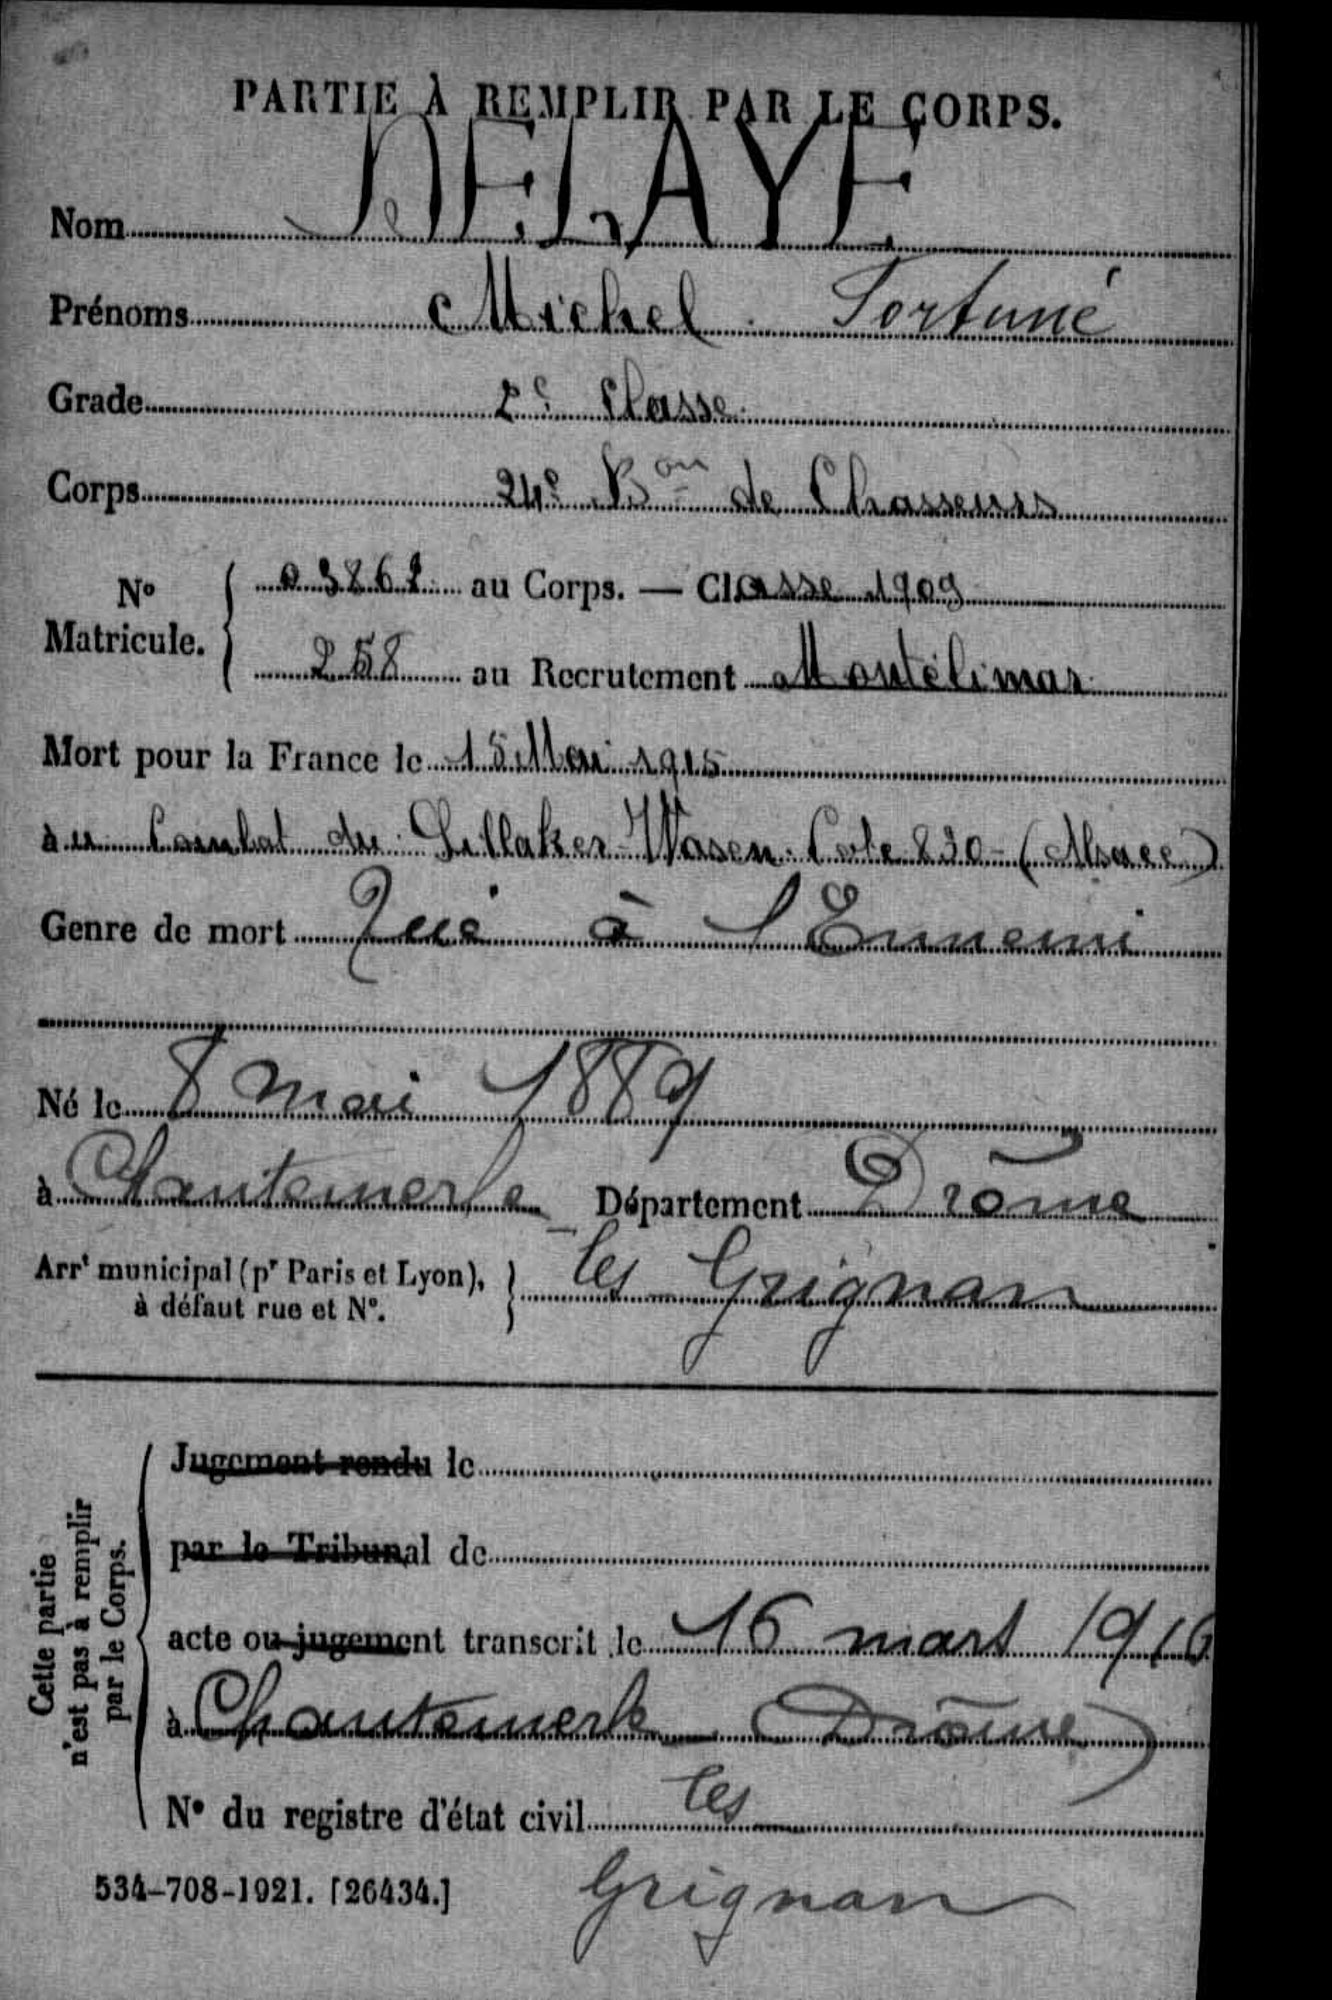 PARTIE À REMPLIR PAR LE CORPS.
Nom DELAYE
Prénoms Michel Fortuné
Grade 2e Classe
Corps 24e Bon de Chasseurs
No Matricule. 03862 au Corps. — Classe 1909
258 au Recrutement Montélimar
Mort pour la France le 15 Mai 1915
au Combat du Sillaker-Wasen. Cote 830 - (Alsace)
Genre de mort Tué à l'Ennemi
Né le 8 mai 1889
à Chantemerle Département Drôme
Arrt municipal (pr Paris et Lyon), à défaut rue et No. les Grignan
Cette partie n'est pas à remplir par le Corps.
Jugement rendu le
par le Tribunal de
acte ou jugement transcrit le 16 mars 1916
à Chantemerle (Drôme)
No du registre d'état civil les
Grignan
534-708-1921. [26434.]